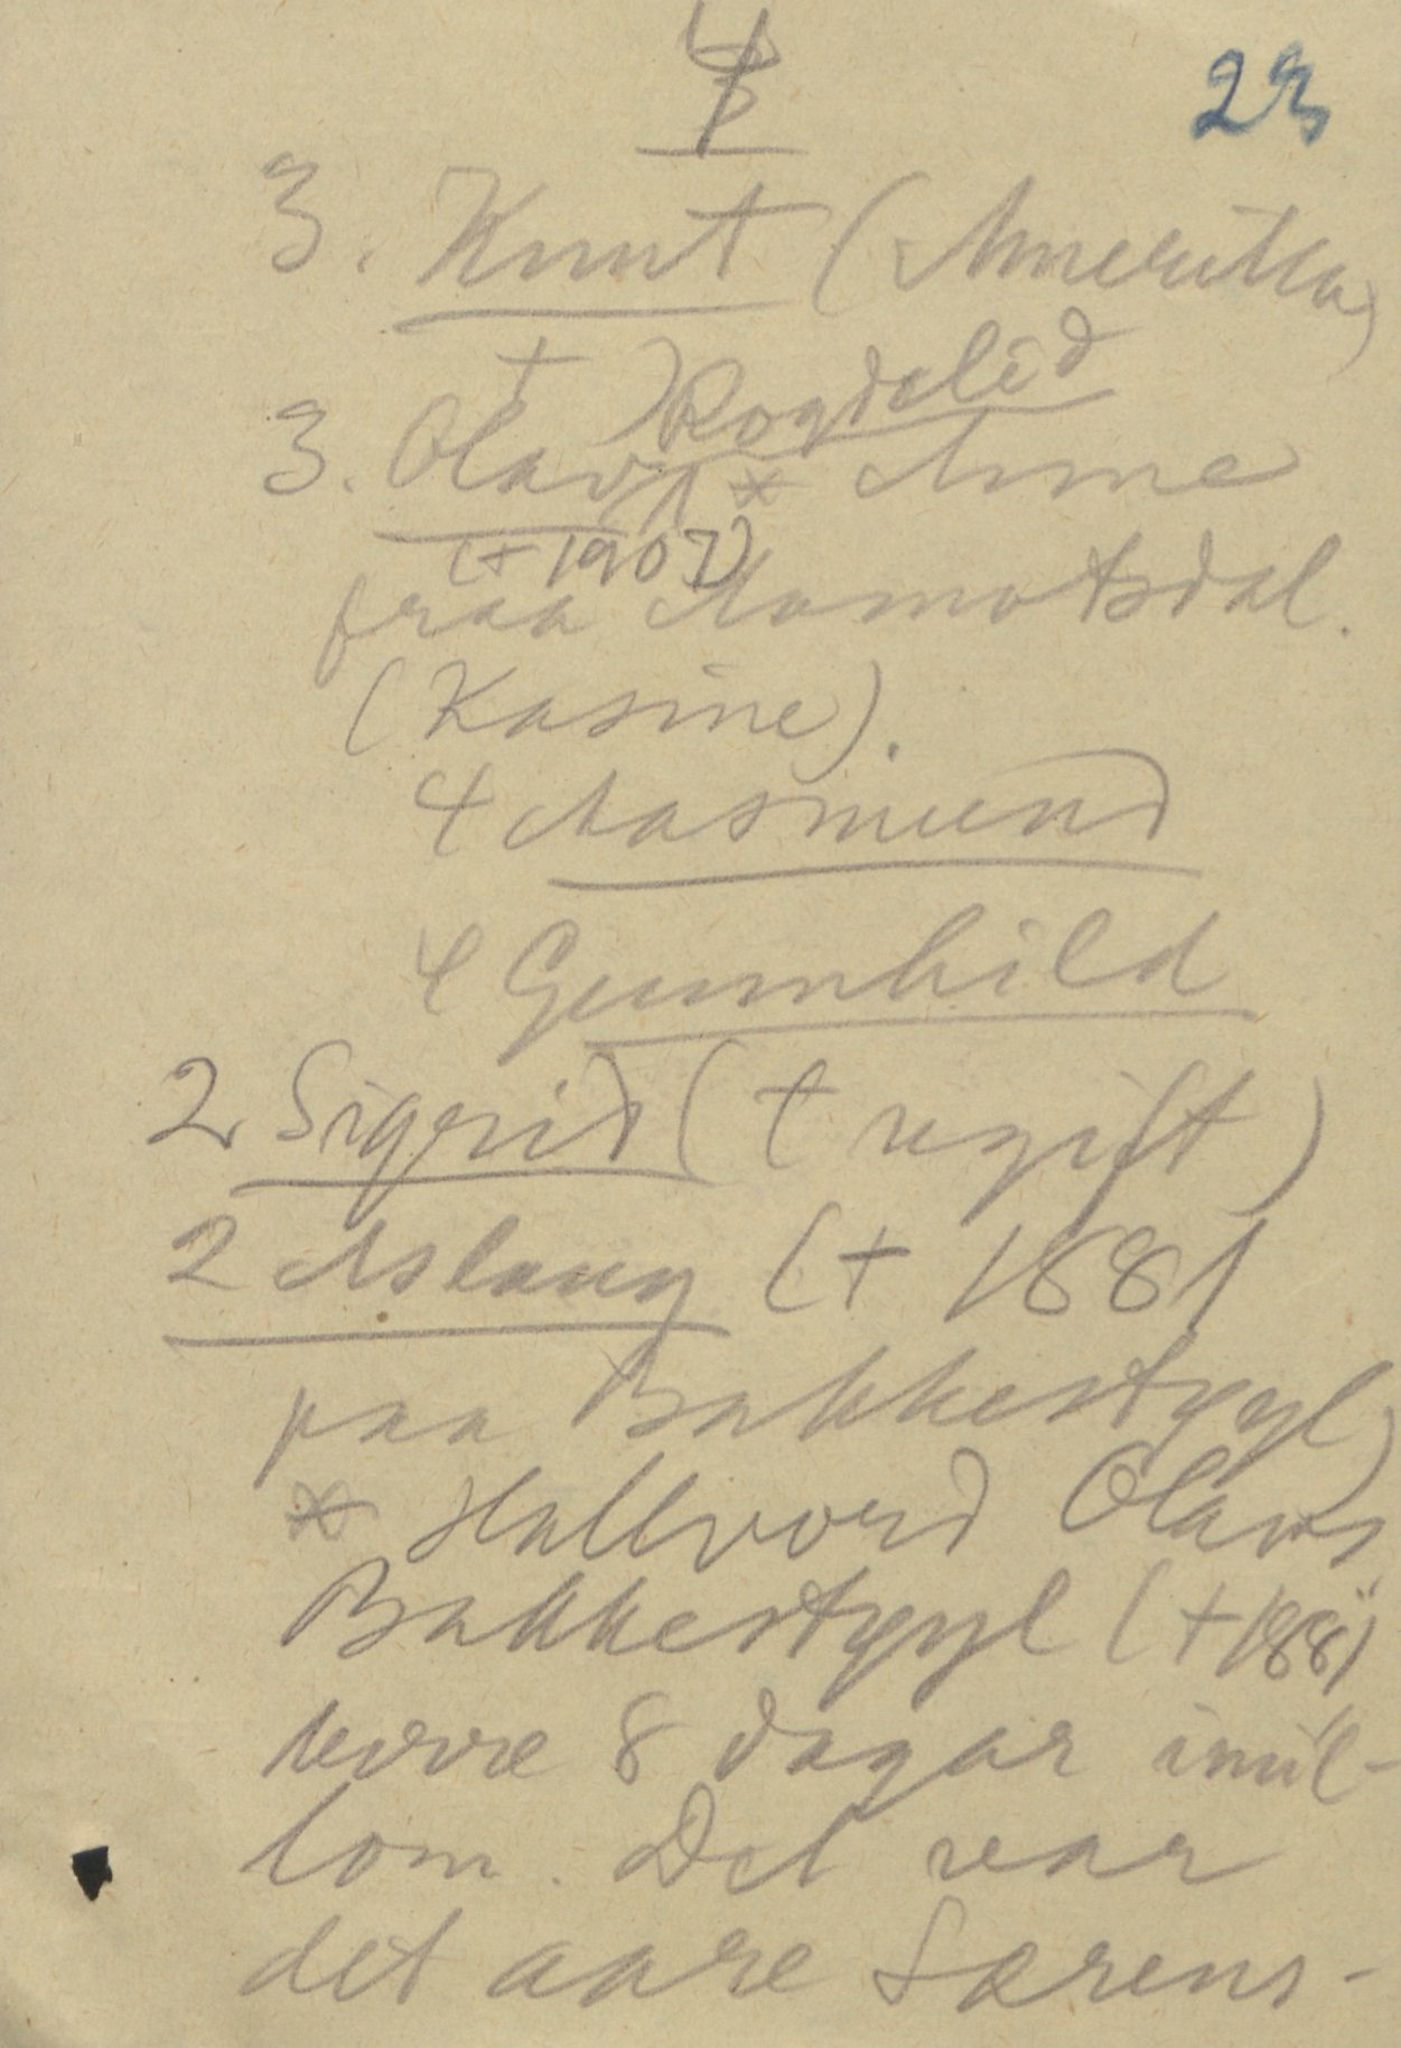 4
23
3. Knut (Amerika)
† Rogdelid
3. Olav * Anne
(+ 1907)
fraa Aamotsdal.
(Kasine).
4 Aasmund
4 Gunnhild
2. Sigrid († ugift)
2 Aslaug (+ 1881
paa Bakkestyyl)
* Hallvord Olavs
Bakkestyyl (+ 188")
berre 8 dagar imil-
lom. Det var
det aare Sørens-